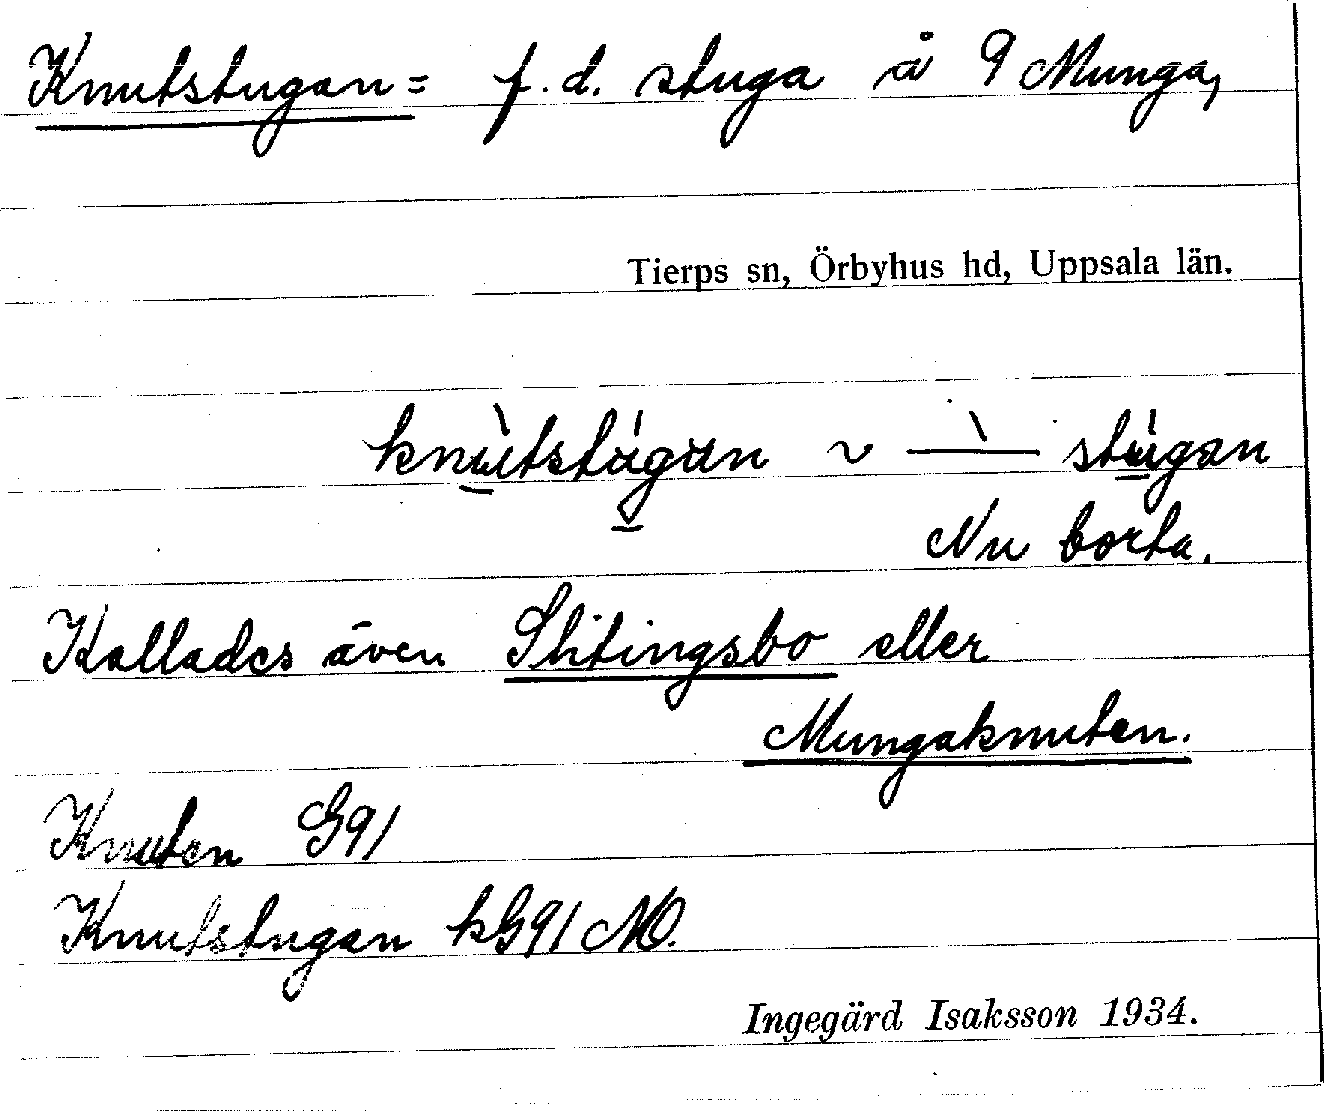 Knutstugan = f. d. stuga å 9 Munga,
Tierps sn, Örbyhus hd, Uppsala län.
knùtstúgan ~ —̀ stúgan
Nu borta.
Kallades även Slitingsbo eller
Mungaknuten.
Knuten G91
Knutstugan kG91 MO.
Ingegärd Isaksson 1934.